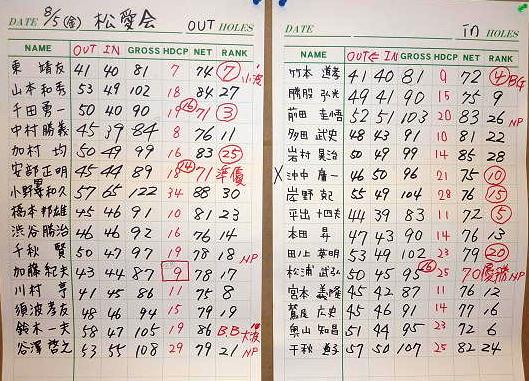 DATE 8/5(金) 松愛会 OUT HOLES
NAME OUT IN GROSS HDCP NET RANK
東 靖友 41 40 81 7 74 ⑦ 小波
山本和秀 53 49 102 18 84 27
千田勇一 50 40 90 19 ⑯ 71 ③
中村勝義 45 39 84 8 76 11
加村 均 50 49 99 16 83 ㉕
安部正明 45 44 89 18 71 準優
小野 和久 57 65 122 34 88 30
橋本邦雄 45 46 91 10 81 23
渋谷勝治 46 46 92 16 76 14
千秋 賢 50 47 97 19 78 18 NP
加藤紀夫 43 44 87 9 78 17
川村 亨 41 45 86 11 75 8
須波孝友 48 46 94 15 79 19
鈴木一夫 58 47 105 19 86 BB 大波
谷澤啓之 53 55 108 29 79 21 NP
DATE in HOLES
NAME OUT IN GROSS HDCP NET RANK
竹本 道孝 41 40 81 9 72 ④ BG
勝股 弘光 49 41 90 15 75 9
前田 圭悟 52 51 103 20 83 26 NP
多田 武史 48 43 91 10 81 22
岩村 昊治 50 49 99 14 85 28
X 沖中 庸一 46 50 96 21 75 ⑩
岸野 克己 55 49 104 28 76 ⑮
平出 十四夫 44 39 83 11 72 ⑤
本田 昇 47 43 90 14 76 13
田上 英明 53 49 102 23 79 ⑳
松浦 武弘 50 45 95 25 70 優勝 NP
宮本 義隆 45 42 87 11 76 12
鷲尾 広史 45 46 91 14 77 16
奥山 知昌 51 44 95 23 72 6
千秋 直子 57 50 107 25 82 24 NP